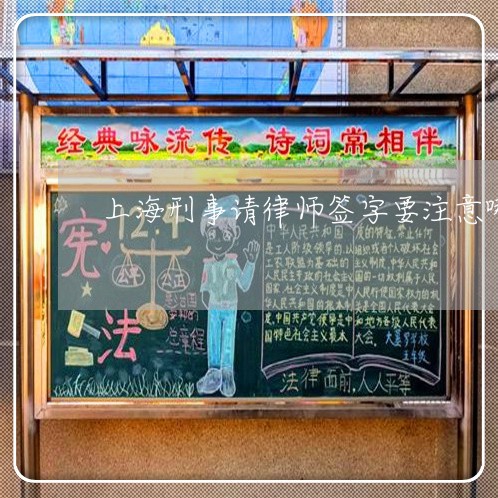 经典咏流传 诗词常相伴
上海刑事请律师签字要注意
12.4
宪
法
公平
公正
总章程
中华人民共和国
是工人阶级领导的,以
工农联盟为基础的
人民民主专政的社会主义
国家,社会主义制度是中
华人民共和国的根本制
度,中国共产党领导是中
国特色社会主义最本
质的特征,禁止任何
组织或者个人破坏社会
主义制度,中华人民共和
国的一切权利属于人民,
人民行使国家权力的机
关是全国人民代表大会
和地方各级人民代表
大会。
五年级
法律面前,人人平等